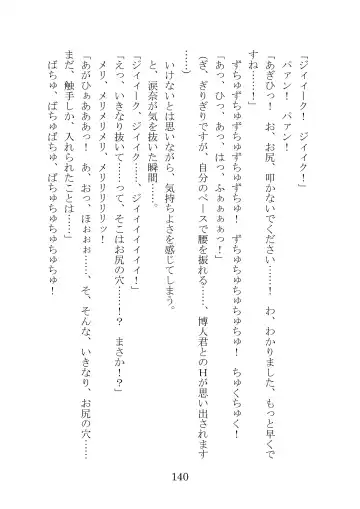 「ジィィーク！　ジィィク！」
　パァン！　パァン！
「あぎひっ！　お、お尻、叩かないでください……！　わ、わかりました、もっと早くで
すね……！」
　ずちゅずちゅずちゅずちゅずちゅ！　ずちゅちゅちゅちゅちゅ！　ちゅくちゅく！
「あっ、ひっ、あっ、はっ、ふぁぁぁぁっ！」
(ぎ、ぎりぎりですが、自分のペースで腰を振れる……、博人君とのＨが思い出されます
……)
　いけないとは思いながら、気持ちよさを感じてしまう。
　と、涙奈が気を抜いた瞬間……。
「ジィィーク、ジィィク……、ジィィイイイイイ！」
「えっ、いきなり抜いて……って、そこはお尻の穴……！？　まさか！？」
　メリ、メリメリメリ、メリリリリリッ！
「あがひぁああああっ！　あ、おっ、ほぉぉぉ……、そ、そんな、いきなり、お尻の穴……
まだ、触手しか、入れられたことは……」
　ばちゅ、ばちゅばちゅ、ばちゅちゅちゅちゅ！
140